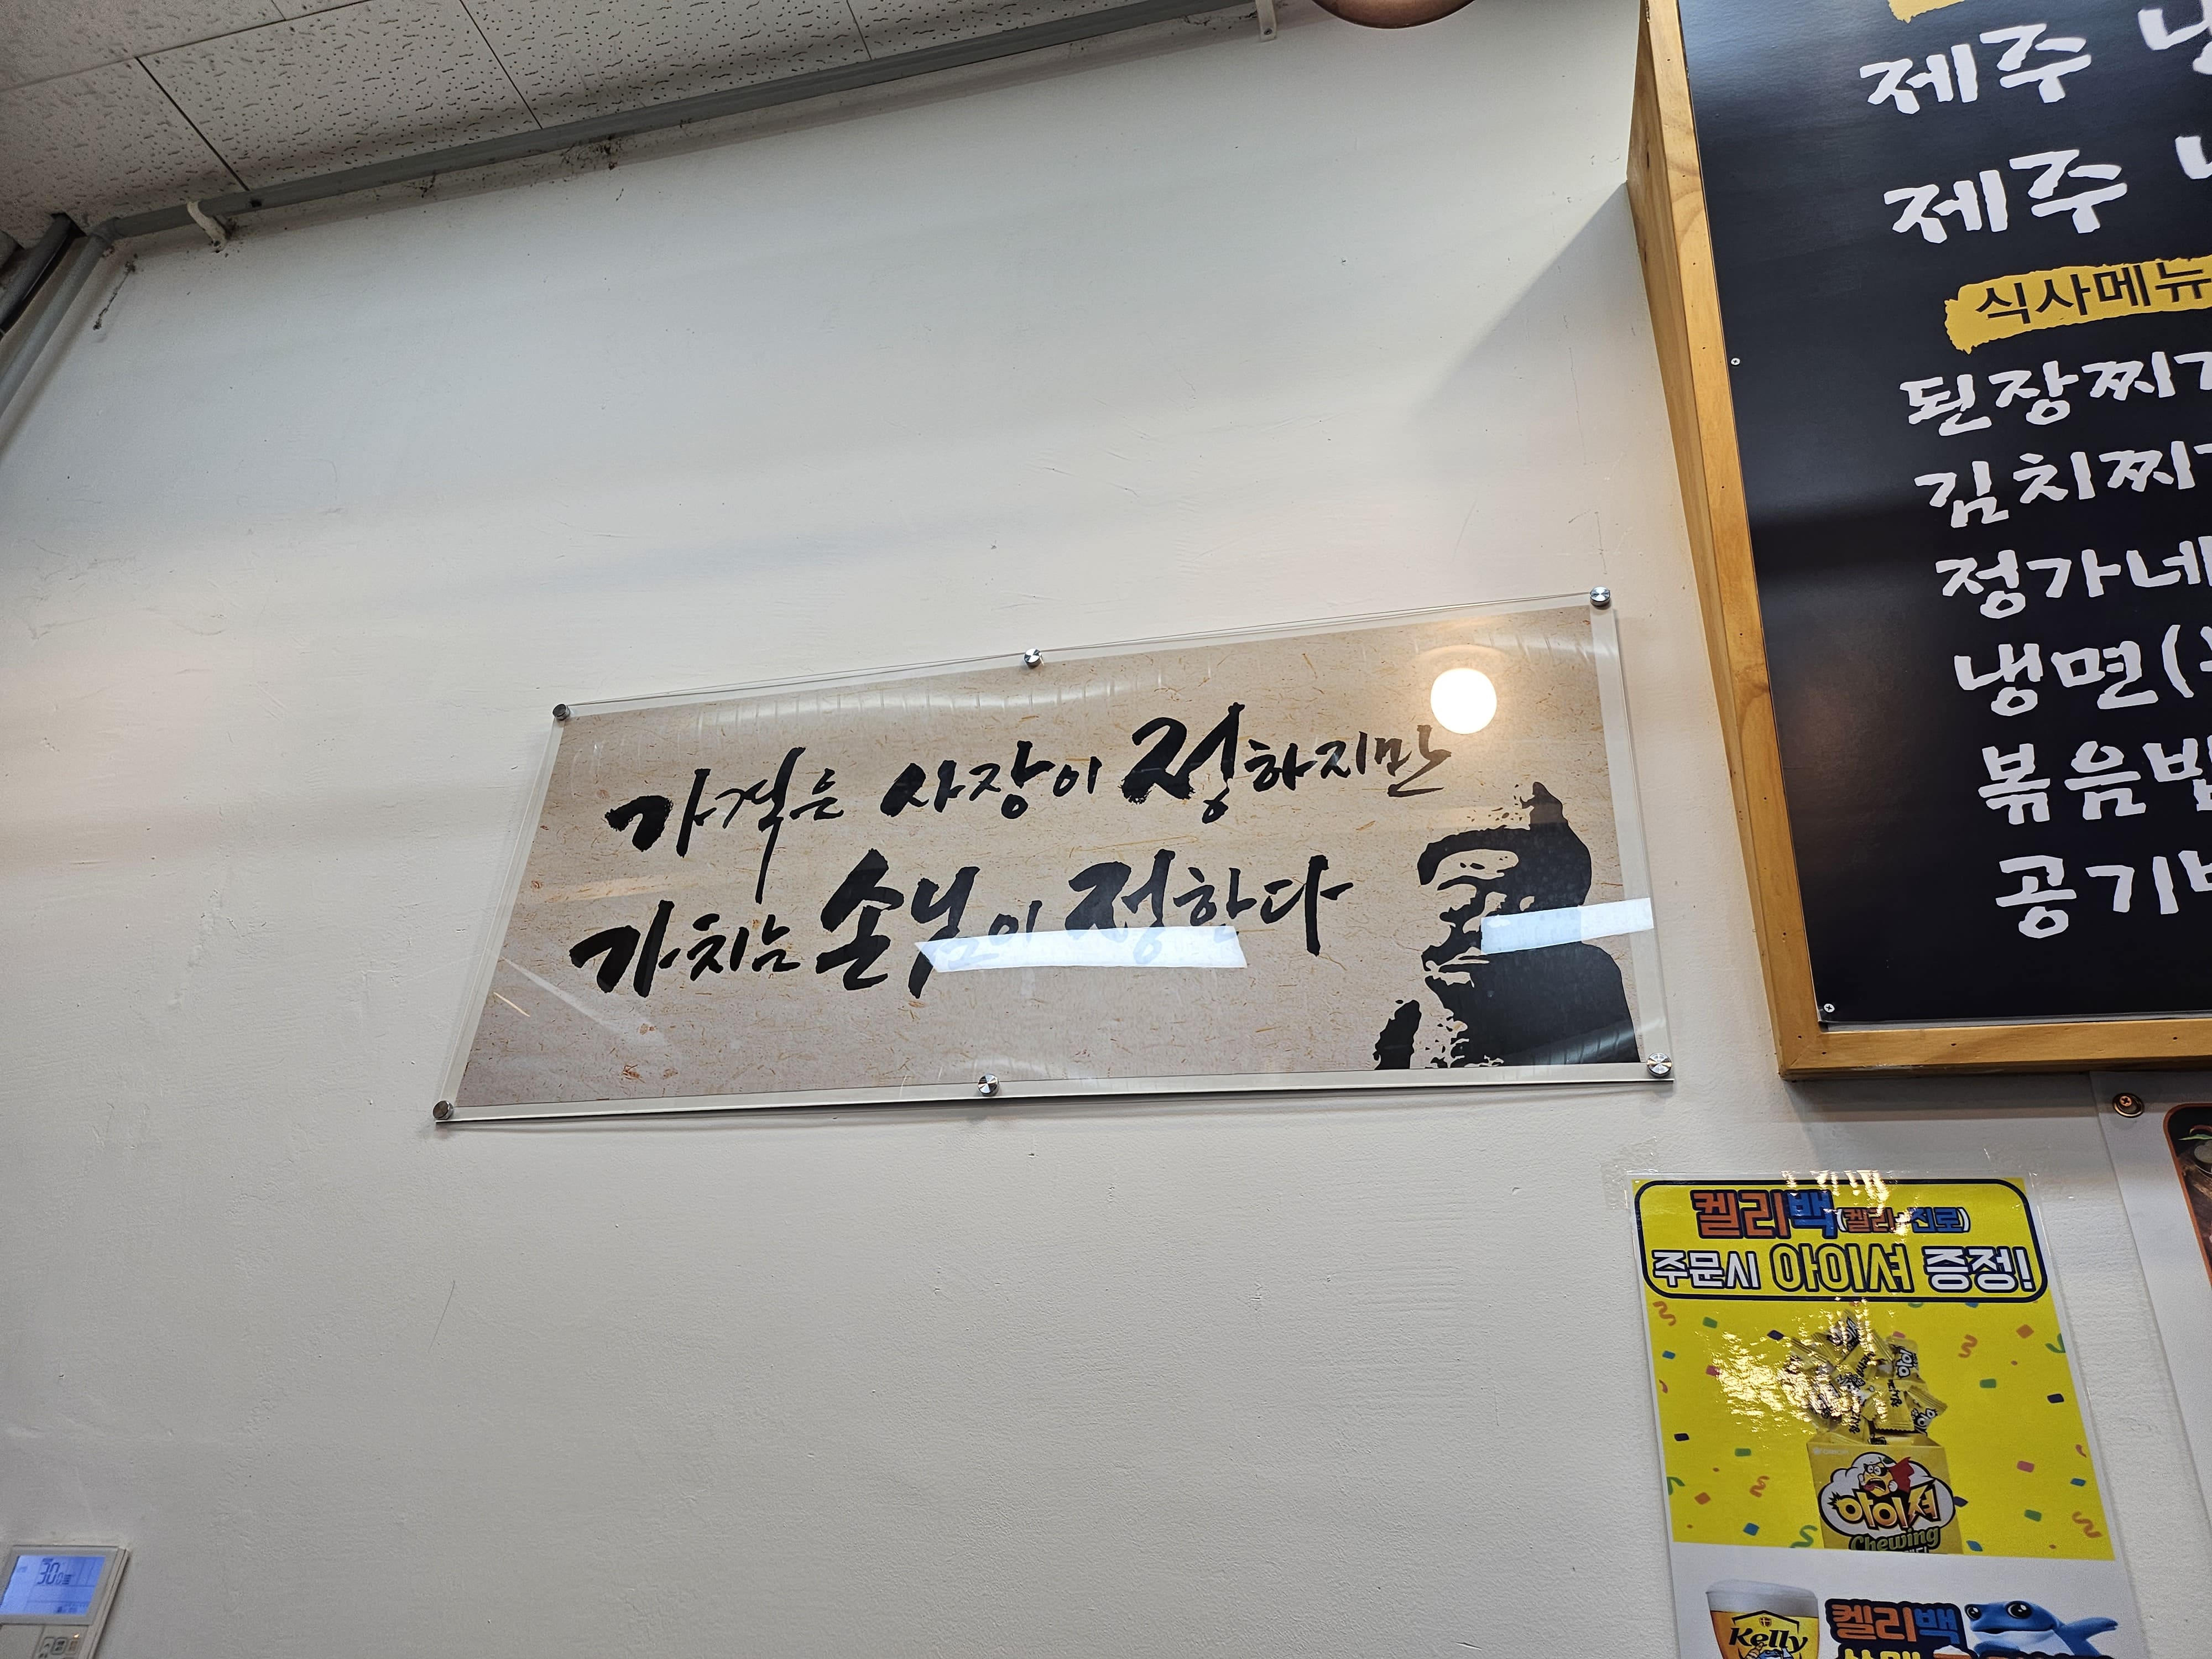 가격은 사장이 정하지만
가치는 손님이 정하다
제주
제주
식사메뉴
된장찌
김치찌
정가네
냉면(
볶음밥
공기
켈리백(켈리+진로)
주문시 아이셔 증정!
아이셔
Chewing
Kelly
켈리백
30